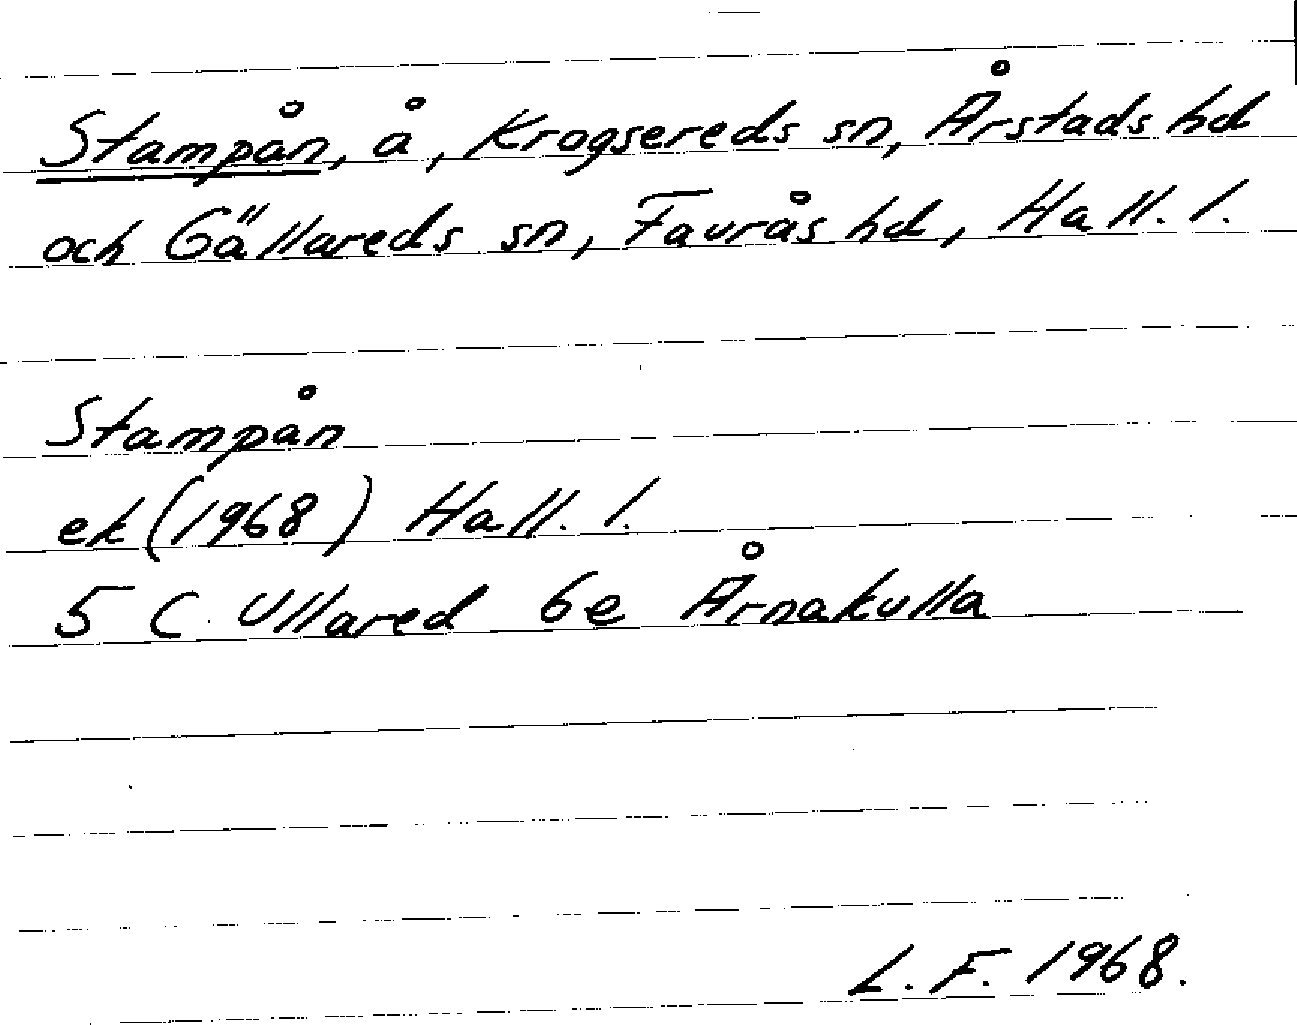 Stampån, å, Krogsereds sn, Årstads hd
och Gällareds sn, Faurås hd, Hall. l.
Stampån
ek (1968) Hall. l.
5 C Ullared 6e Årnakulla
L. F. 1968.